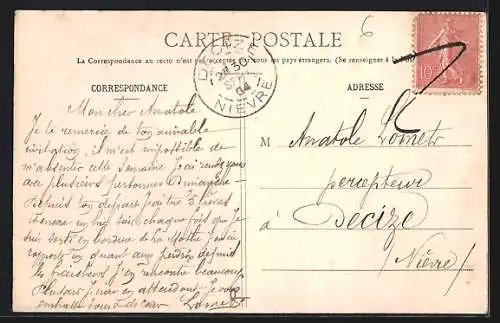 6
CARTE POSTALE
La Correspondance au recto n'est pas acceptée par tous les pays étrangers. (Se renseigner à la Poste)
CORRESPONDANCE
ADRESSE
DECIZE
30
SEPT
04
NIEVRE
10
Mon cher Anatole
Je te remercie de ton aimable
invitation, il m'est impossible de
m'absenter cette semaine j'ai rendez vous
avec plusieurs personnes Dimanche
Depuis ton départ j'ai tué 3 lièvres
chaque fois que je
suis sorti en bordure de la
rapport en quant aux perdrix depuis
j'en rencontre beaucoup
Plus tard en attendant je vous
embrasse tous de cœur
M Anatole
percepteur
à Decize
(Nièvre)